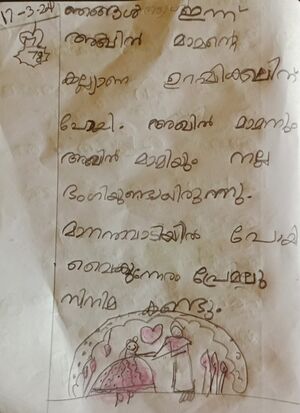 17-3-24
ഞങ്ങൾ ഇന്ന്
അഖിൻ മാമൻ്റെ
കല്ല്യാണ ഉറപ്പിക്കലിന്
പോയി. അഖിൻ മാമനും
അഖിൻ മാമിയും നല്ല
ഭംഗിയുണ്ടായിരുന്നു.
മാനന്തവാടിയിൽ പോയി
വൈകുന്നേരം പ്രേമലു
സിനിമ കണ്ടു.